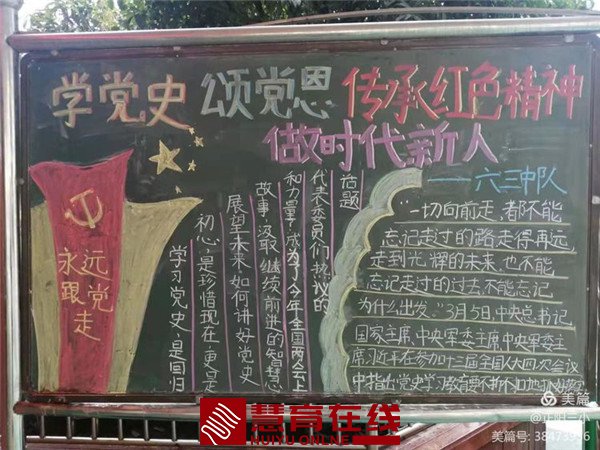 学党史 颂党恩 传承红色精神
做时代新人
——六三中队
永远
跟党
走
学习党史,是回归
初心,是珍惜现在,更是
展望未来,如何讲好党史
故事,汲取继续前进的智慧
和力量,成为了今年全国两会上
代表委员们热议的
话题
一切向前走,都不能
忘记走过的路走得再远,
走到光辉的未来,也不能
忘记走过的过去,不能忘记
为什么出发。”3月5日,中央总书记
国家主席,中央军委主席,中央军委主
席习近平在参加十三届全国人大四次会议
中指出党史学习教育要不折不扣地
慧育在线
HUIYU ONLINE
美篇
美篇号: